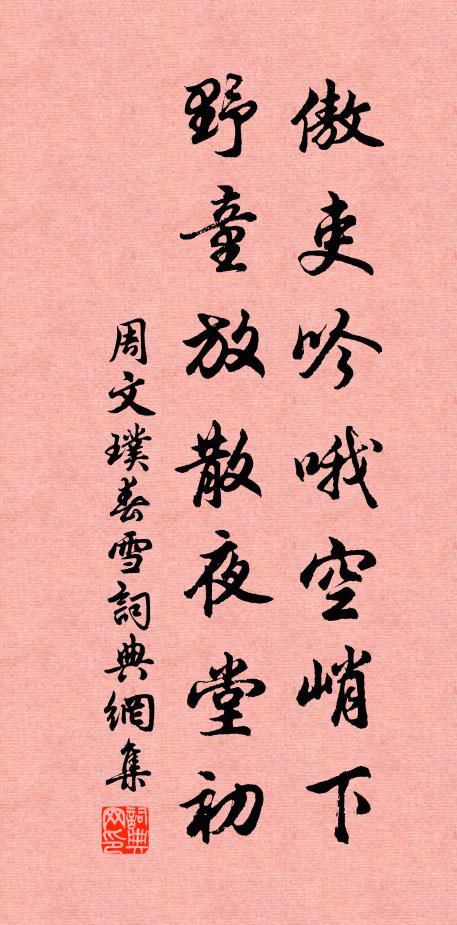 傲吏吟哦空峭下
野童放散夜堂初
周文璞春雪詞典網集
詞典网印